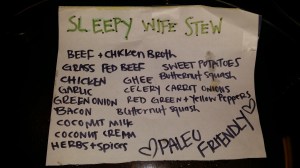 SLEEPY WIFE STEW
BEEF + CHICKEN BROTH
GRASS FED BEEF SWEET POTATOES
CHICKEN GHEE Butternut Squash
GARLIC CELERY CARROT ONIONS
GREEN ONION RED GREEN + Yellow Peppers
BACON Butternut Squash
COCONUT MILK
COCONUT CREMA
HERBS + Spices
PALEO FRIENDLY